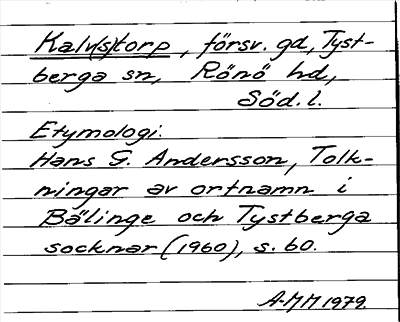 Kalv(s)torp, försv. gd, Tyst-
berga sn, Rönö hd,
Söd. l.
Etymologi.
Hans G. Andersson, Tolk-
ningar av ortnamn i
Bälinge och Tystberga
socknar (1960), s. 60.
A-MM 1979.